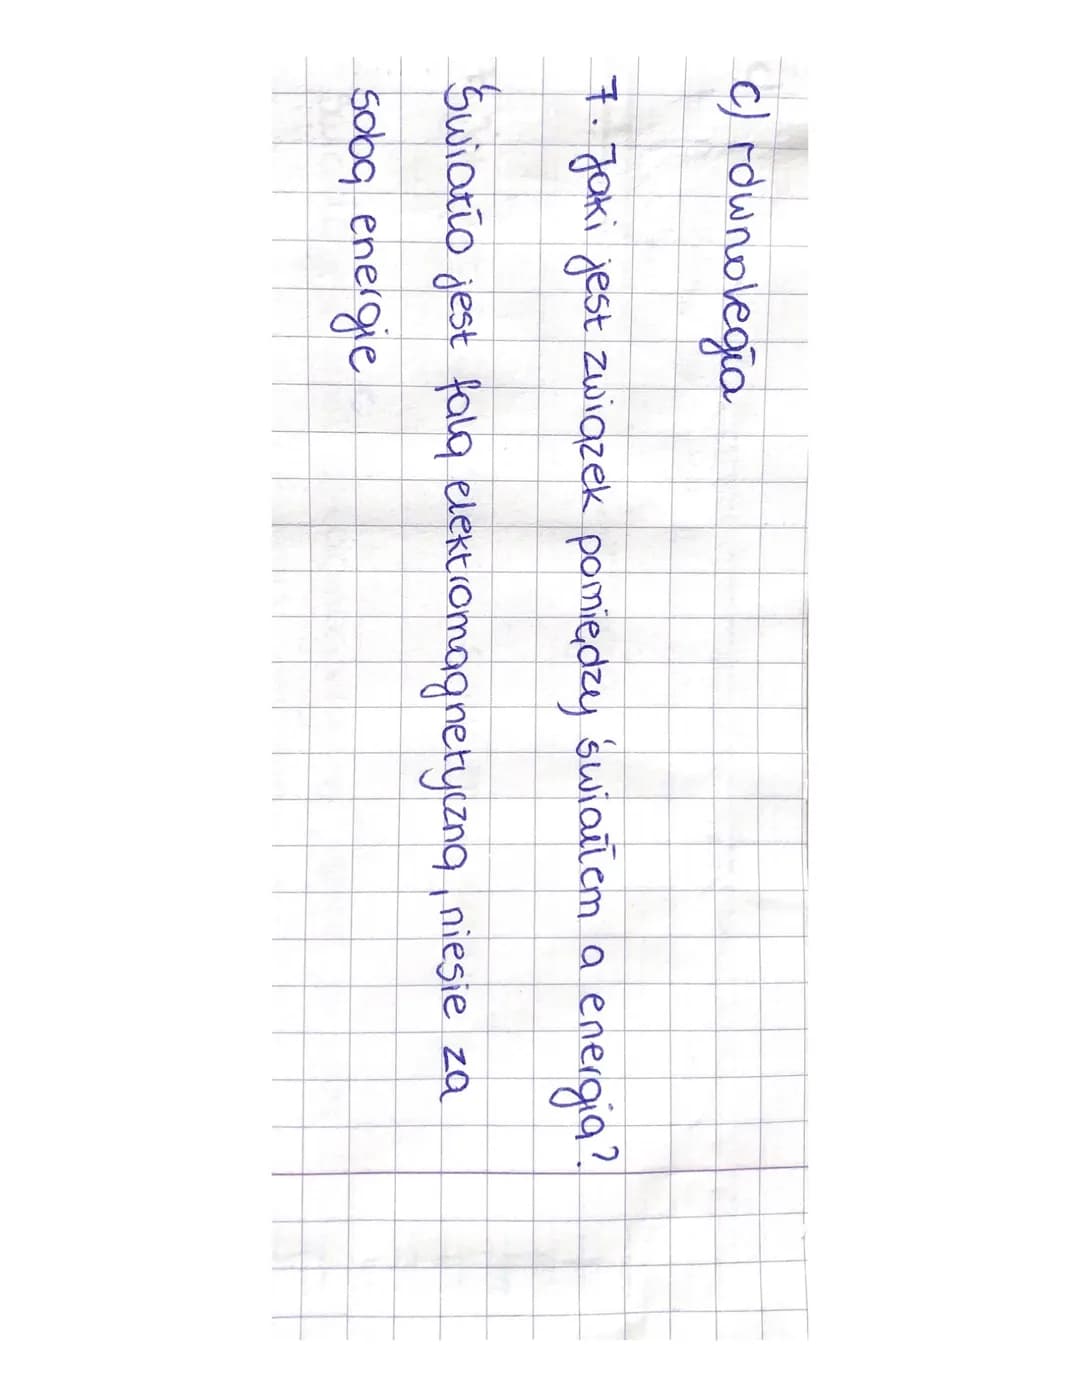 c) równoległa
7. Jaki jest związek pomiędzy światłem a energią?
Światło jest falą elektromagnetyczną, niesie za
sobą energie